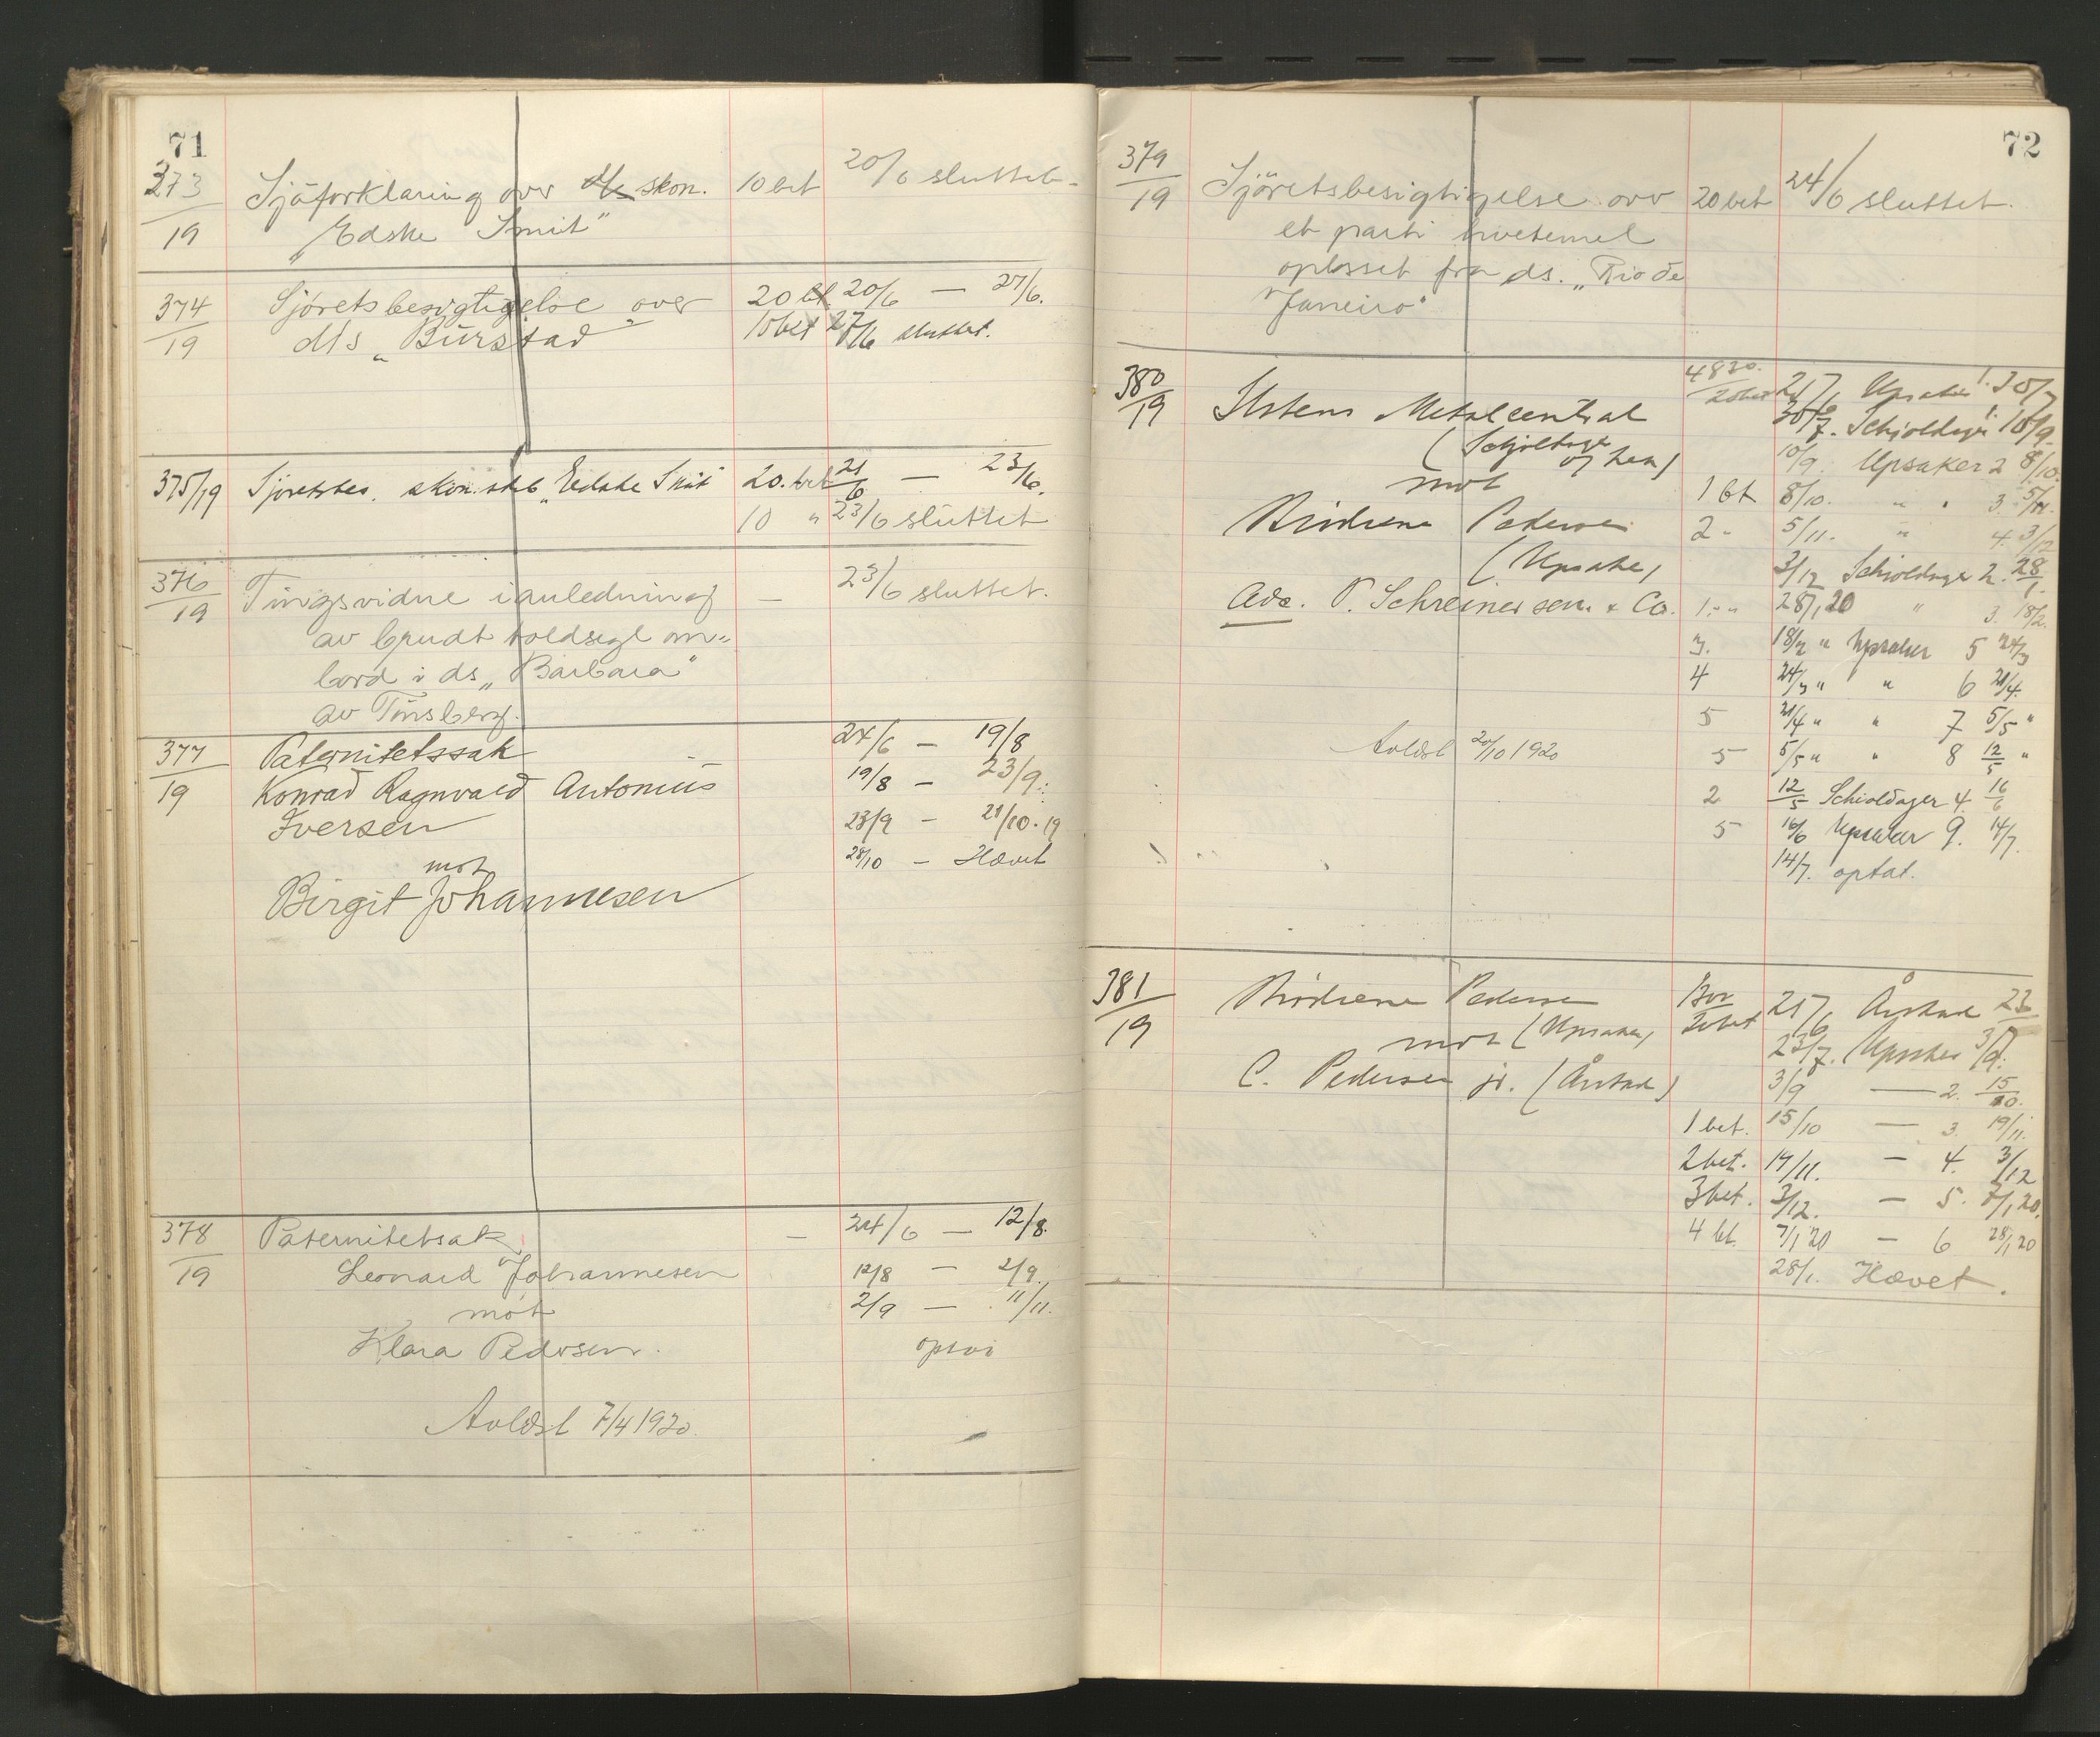 71
373/19 Sjöforklaring over skon. 10 bet 20/6 sluttet.
"Edske Smit"
374/19 Sjøretsbesigtigelse over 20 bt. 20/6 — 27/6.
d/s "Bürstad" 10 bet 27/6 sluttet.
375/19 Sjøretsbes. skon. skib "Eedske Smit" 20. bet 21/6 — 23/6.
10 " 23/6 sluttet
376/19 Tingsvidne i anledning — 23/6 sluttet.
av brudt toldsegl om=
bord i ds "Barbara"
av Tönsberg.
377/19 Paternitetssak 24/6 — 19/8
Konrad Ragnvald Antonius 19/8 — 23/9.
Iversen 23/9 — 28/10.19
mot 28/10 — Hævet
Birgit Johannesen
378/19 Paternitetsak — 24/6 — 12/8.
Leonard Johannesen 12/8 — 2/9.
mot 2/9 — 11/11.
Klara Pedersen.
Avldst 7/4 1920.
72
379/19 Sjöretsbesigtigelse over 20 bet 24/6 sluttet.
et parti hvetemel
oplosset fra ds. "Rio de
Janeiro"
380/19 Ilstens Metalcentral 4830. 20 bet Upsaker 1. 30/7
30/7. Schioldager 1. 10/9.
(Schjoldager
10/9. Upsaker 2 8/10.
mot 1 bt 8/10. " " 3. 5/11.
Brödrene Pedersen 2 " 5/11. " 4. 3/12
(Upsaker) 3/12 Schioldager 2. 28/1.
Adv. P. Schreiner sen. & Co. 1. " " 28/1 20 " 3. 18/2.
3. 18/2 " Upsaker 5 24/3
4 24/3 " " 6 21/4.
5 21/4 " " 7 5/5 "
Avldst 20/10 1920 5 5/5 " " 8 12/5 "
2 12/5 Schioldager 4 16/6
5 16/6 Upsaker 9. 14/7.
14/7. optat.
381/19 Brödrene Pedersen 20 bet Årstad 23
mot (Upsaker) 23/7. Upsaker 3/9.
C. Pedersen jr. (Årstad) 3/9 — 2. 15/10.
1 bet. 15/10 — 3. 19/11.
2 bet. 19/11. — 4. 3/12
3 bet. 3/12. — 5. 7/1 20.
4 bt. 7/1 20 — 6 28/1 20
28/1. Hævet.